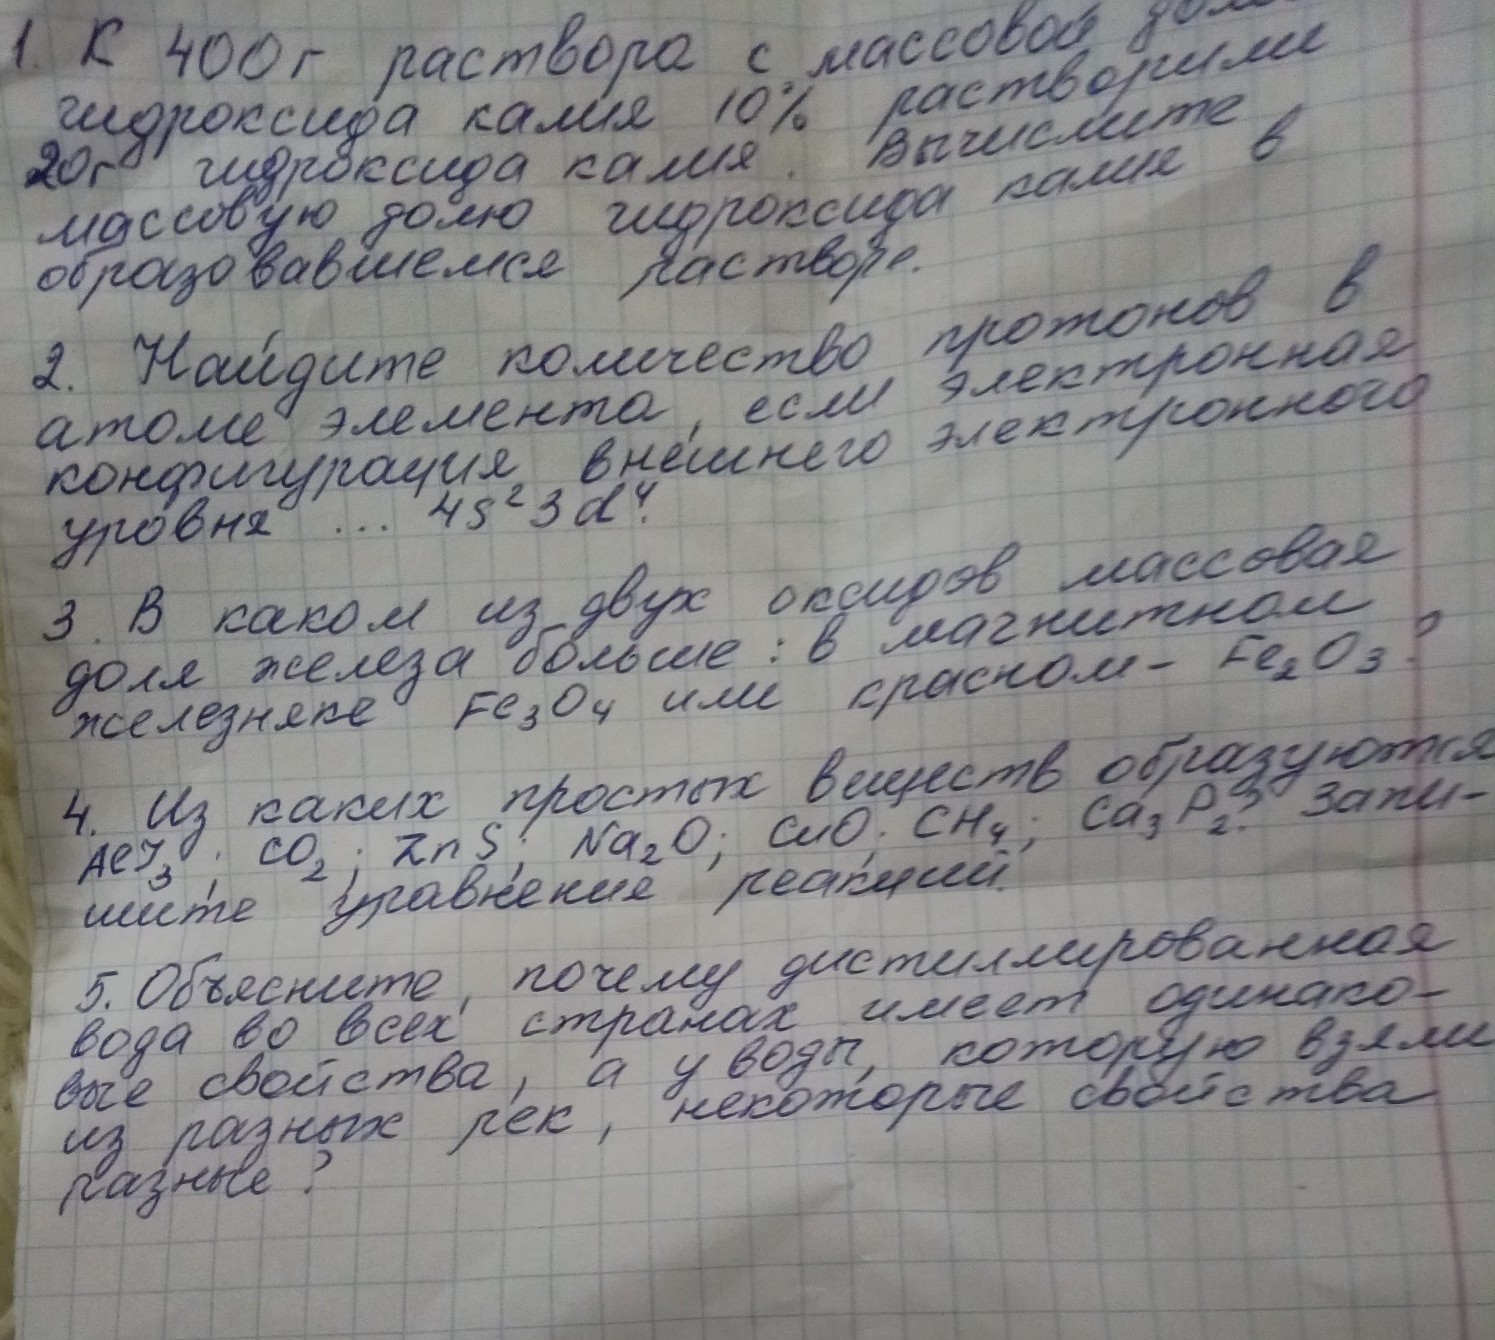 1. К 400г раствора с массовой долей
гидроксида калия 10% растворили
20г гидроксида калия. Вычислите
массовую долю гидроксида калия в
образовавшемся растворе.
2. Найдите количество протонов в
атоме элемента, если электронная
конфигурация внешнего электронного
уровня ... 4s²3d⁴.
3. В каком из двух оксидов массовая
доля железа больше: в магнитном
железняке Fe₃O₄ или красном - Fe₂O₃?
4. Из каких простых веществ образуются
AlI₃; CO₂; ZnS; Na₂O; CuO; CH₄; Ca₃P₂? Запи-
шите уравнение реакций.
5. Объясните, почему дистиллированная
вода во всех странах имеет одинако-
вые свойства, а у воды, которую взяли
из разных рек, некоторые свойства
разные?